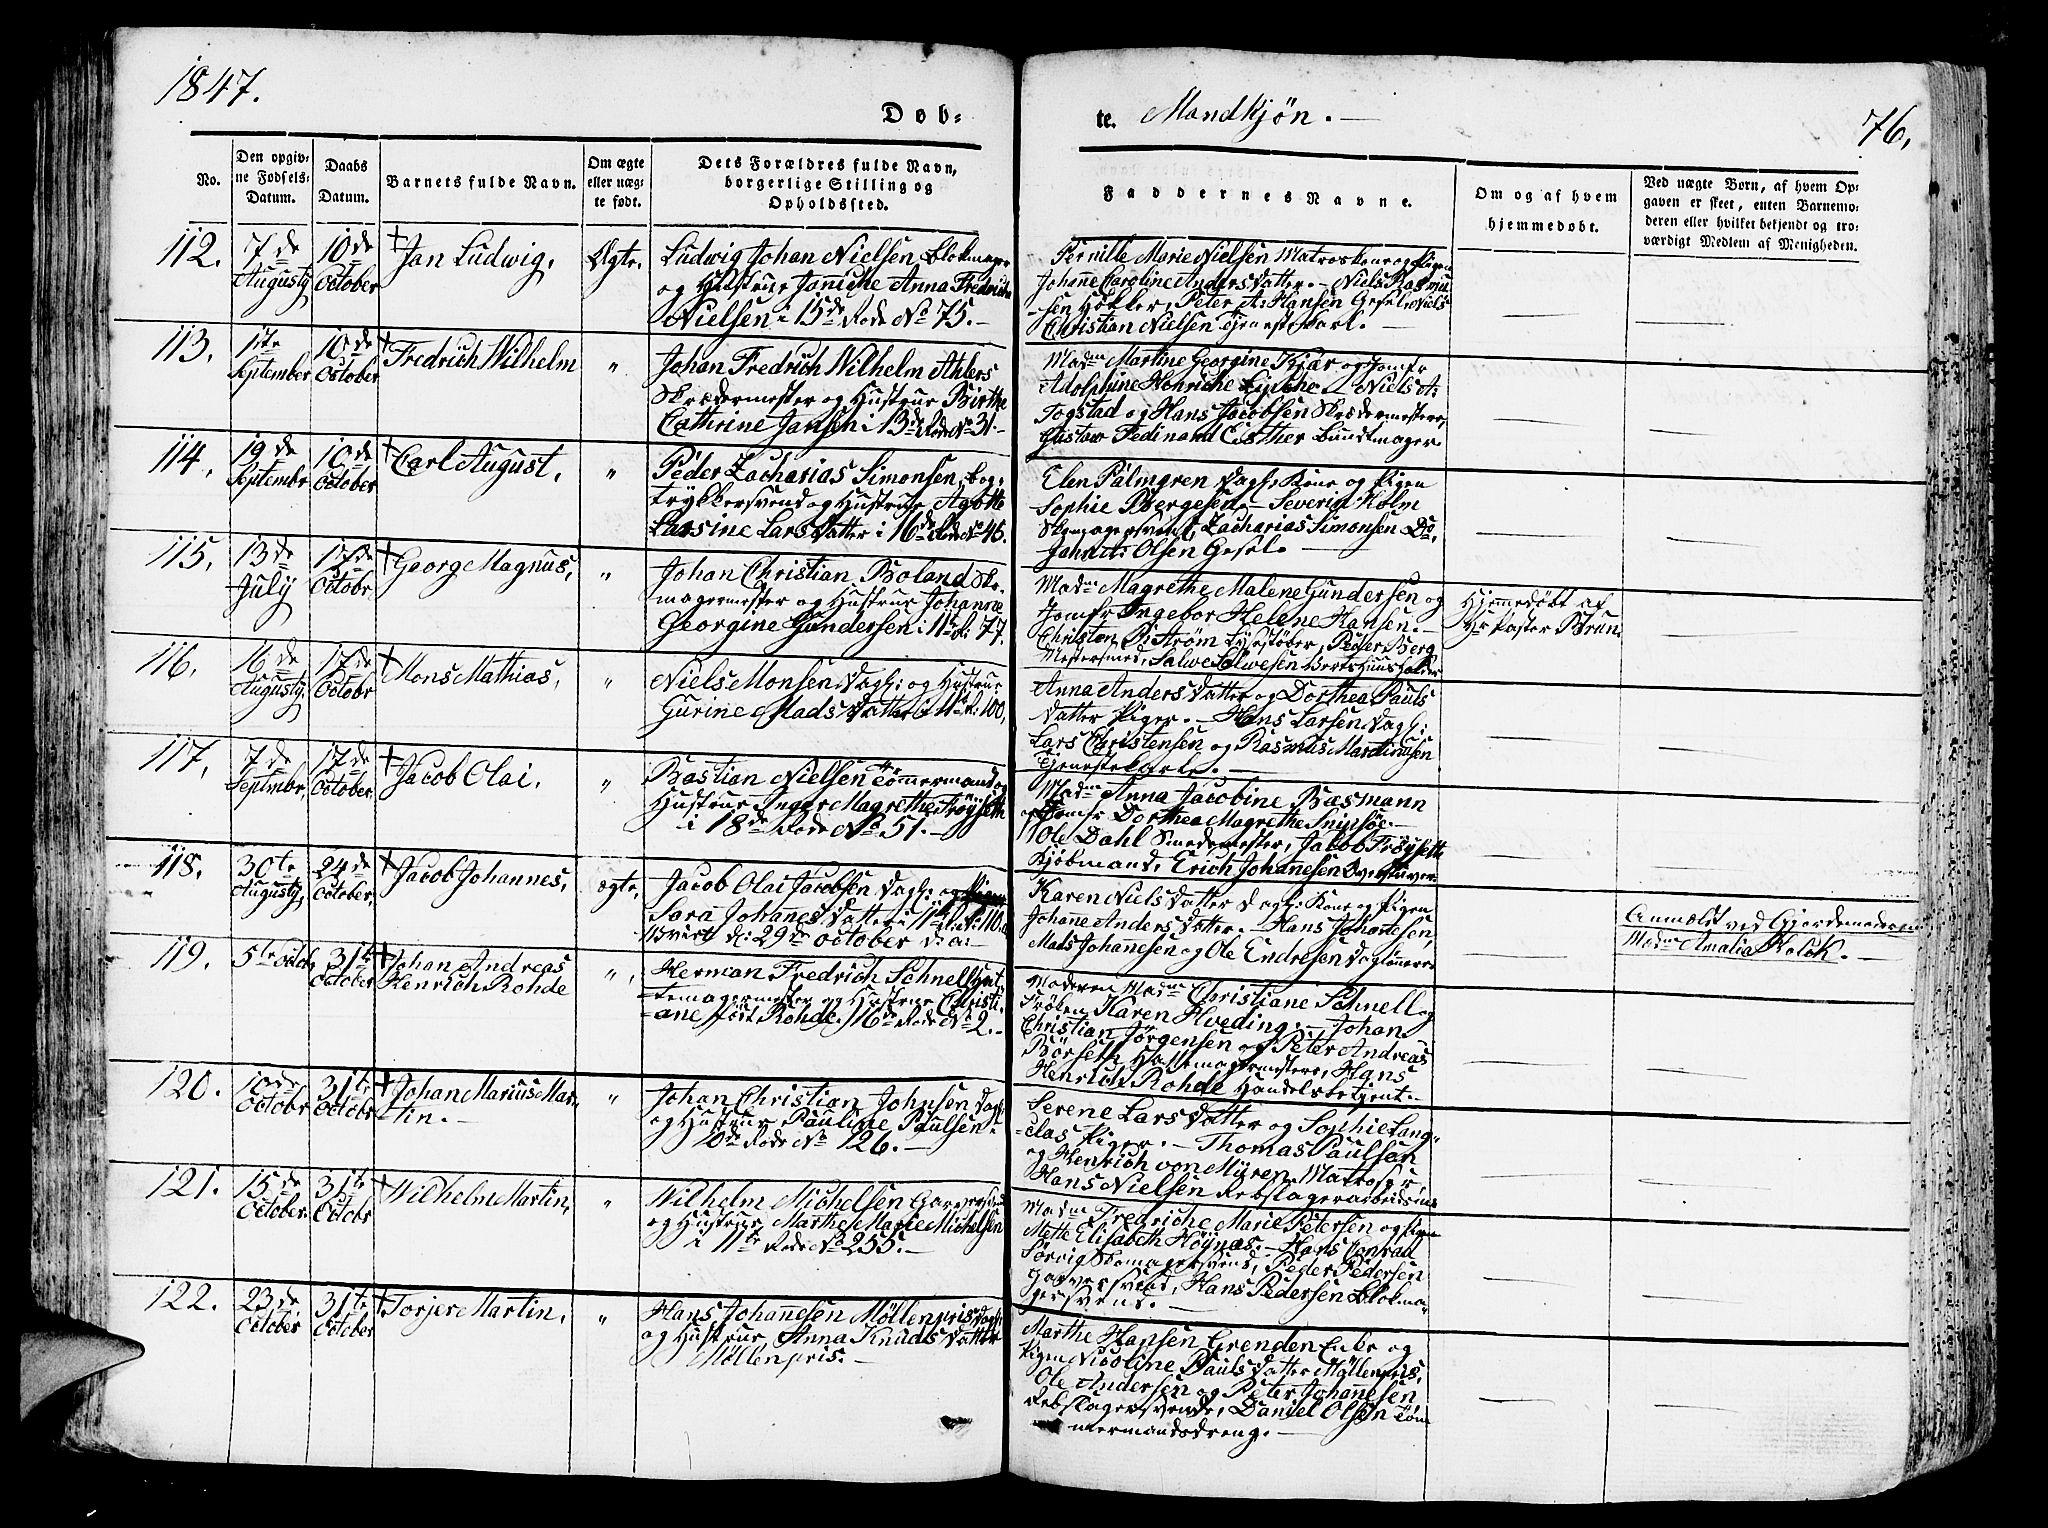 1847.
Døb-
te. Mandkjøn. —
76.
No.
Den opgiv-
ne Fødsels-
Datum.
Daabs
Datum.
Barnets fulde Navn.
Om ægte
eller uæg-
te født.
Dets Forældres fulde Navn,
borgerlige Stilling og
Opholdssted.
Faddernes Navne.
Om og af hvem
hjemmedøbt.
Ved uægte Børn, af hvem Op-
gaven er skeet, enten Barnemo-
deren eller hvilket bekjendt og tro-
værdigt Medlem af Menigheden.
112.
7de
Augusty
10de
October
+Jan Ludwig.
Ægte.
Ludwig Johan Nielsen Blokmager
og Hustrue Janiche Anna Fredrich
Nielsen i 15de Rode No 75.—
Pernille Marie Nielsen Matroskone og Pigen
Johanne Caroline Andersdatter.— Niels Rasmu-
sen Høkker, Peter A. Hansen Gesel, Niels
Christian Nielsen Tjenestekarl.—
113.
11te
September
10de
October
+Fredrich Wilhelm
"
Johan Fredrich Wilhelm Ahlers
Skrædermester og Hustrue Birthe
Cathrine Jansen i 13de Rode No 31.—
Madm Martine Georgine Kjær og Jomfr
Adolphine Henriche Lyche.— Niels A.
Togstad og Hans Jacobsen Skrædermestere,
Gustav Fedinand Esther Bundtmager
114.
19de
Septembr
10de
October
+Carl August,
"
Peder Zacharias Simonsen, Bog-
trykkersvend og Hustrue Agothe
Lassine Larsdatter i 16de Rode No 46.
Elen Palmgren Dagl. Kone og Pigen
Sophie Børgesen.— Severin Holm
Skomagersvend, Zacharias Simonsen Do,
Johannes Olsen Gesel.—
115.
13de
July
17de
Octobr
+Georg Magnus,
"
Johan Christian Boland Sko-
magermester og Hustrue Johanne
Georgine Gundersen i 11te R: 77.
Madm Magrethe Malene Gundersen og
Jomfr Ingebor Helene Hansen.—
Christen B. Strøm Lysestøber, Peder Berg
Mestersmed, Salwe Salwesen Bertshuusholder
Hjemmedøbt af
Hr Paster Brun
116.
16de
Augusty
17de
Octobr
+Mons Mathias,
"
Niels Monsen, Dagl: og Hustrue
Gurine Madsdatter i 11te R: 100,
Anna Andersdatter og Dorthea Pauls
datter Piger.— Hans Larsen, Dagl:
Lars Christensen og Rasmus Martinusen
Tjenestekarle.—
117,
7de
Septembr,
17de
October
+Jacob Olai.
"
Bastian Nielsen Tømmermand og
Hustrue Inger Magrethe Frøysett
i 18de Rode No 51.—
Madm Anna Jacobine Basmann
og Jomfr Dorthea Magrethe Snipsøe.—
Ole Dahl Smedemester, Jacob Frøysett
Kjøbmand, Erich Johanesen
118.
30te
Augusty,
24de
October,
+Jacob Johannes,
ægte,
Jacob Olai Jacobsen Dagl: og
Sara Johannesdatter i 11te R: 110.
29de October
Karen Nielsdatter Dagl: Kone og Pigen
Johanne Andersdatter.— Hans Johannesen,
Mads Johannesen og Ole Endresen Dagl
Anmeldt ved Gjordemoderen
Madm Amalia Holck.—
119.
5te Octobr,
31te
October
+Johan Andreas
Henrich Rohde
"
Herman Fredrich Schnell
magermester og Hustrue Christi-
ane født Rohde. 16de Rode No 2.—
Moderen Madm Christiane Schnell og
Frøken Karen Hveding.— Johan
Christian Jørgensen og Peter Andreas
Børseth Hattemagermestere, Hans
Henrich Rohde Handelsbetjent.—
120.
10de
Octobr
31te
Octobr
+Johan Marius Mar-
tin.—
"
Johan Christian Johnsen Dagl:
og Hustrue Pauline Paulsen i
10de Rode No 126.—
Serene Larsdatter og Sophie Lang-
elas Piger.— Thomas Paulsen
og Henrich von Myren Matroser,
Hans Nielsen Rebslagerarbeidsm
121.
15de
October.
31te
Octobr
+Wilhelm Martin,
"
Wilhelm Michelsen Garversvend
og Hustrue Marthe Marie Michelsen
i 11te Rode No 255.—
Madm Fredriche Marie Petersen og Pigen
Mette Elisabeth Høynæs.— Hans Conrad
Sørvig Skomagersvend, Peder Pedersen
Garversvend, Hans Pedersen Blokma-
gersvend.—
122.
23de
October
31te
October
+Torjer Martin,
"
Hans Johannesen Møllenpris Dagl:
og Hustrue, Anna Knudsdatter
Møllenpris.—
Marthe Hansen Grenden Enke og
Pigen Nicoline Paulsdatter Møllenpris,
Ole Andersen og Peter Johannesen
Rebslagersvende, Daniel Olsen Tøm
mermandsdreng.—